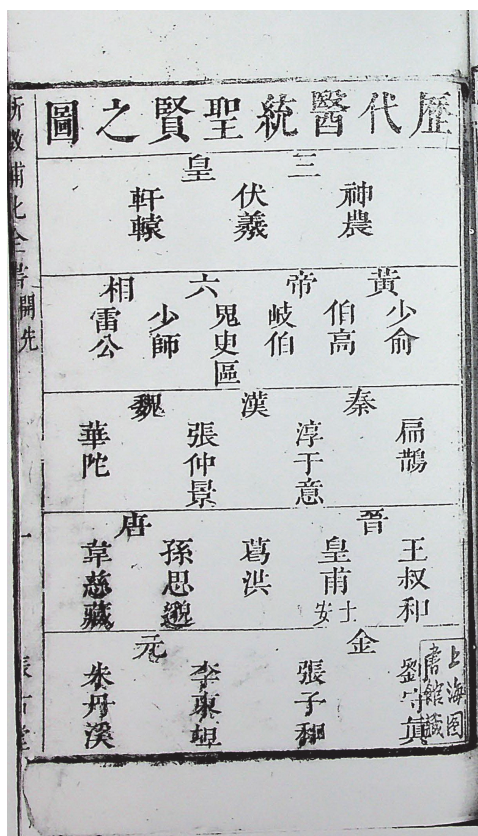 歷代醫統聖賢之圖
三皇
神農
伏羲
軒轅
黃帝六相
少俞
伯高
岐伯
鬼史區
少師
雷公
秦漢魏
扁鵲
淳于意
張仲景
華陀
晋唐
王叔和
皇甫士安
葛洪
孫思邈
韋慈藏
金元
劉守真
張子和
李東垣
朱丹溪
上海图書館藏
全書
開先
一